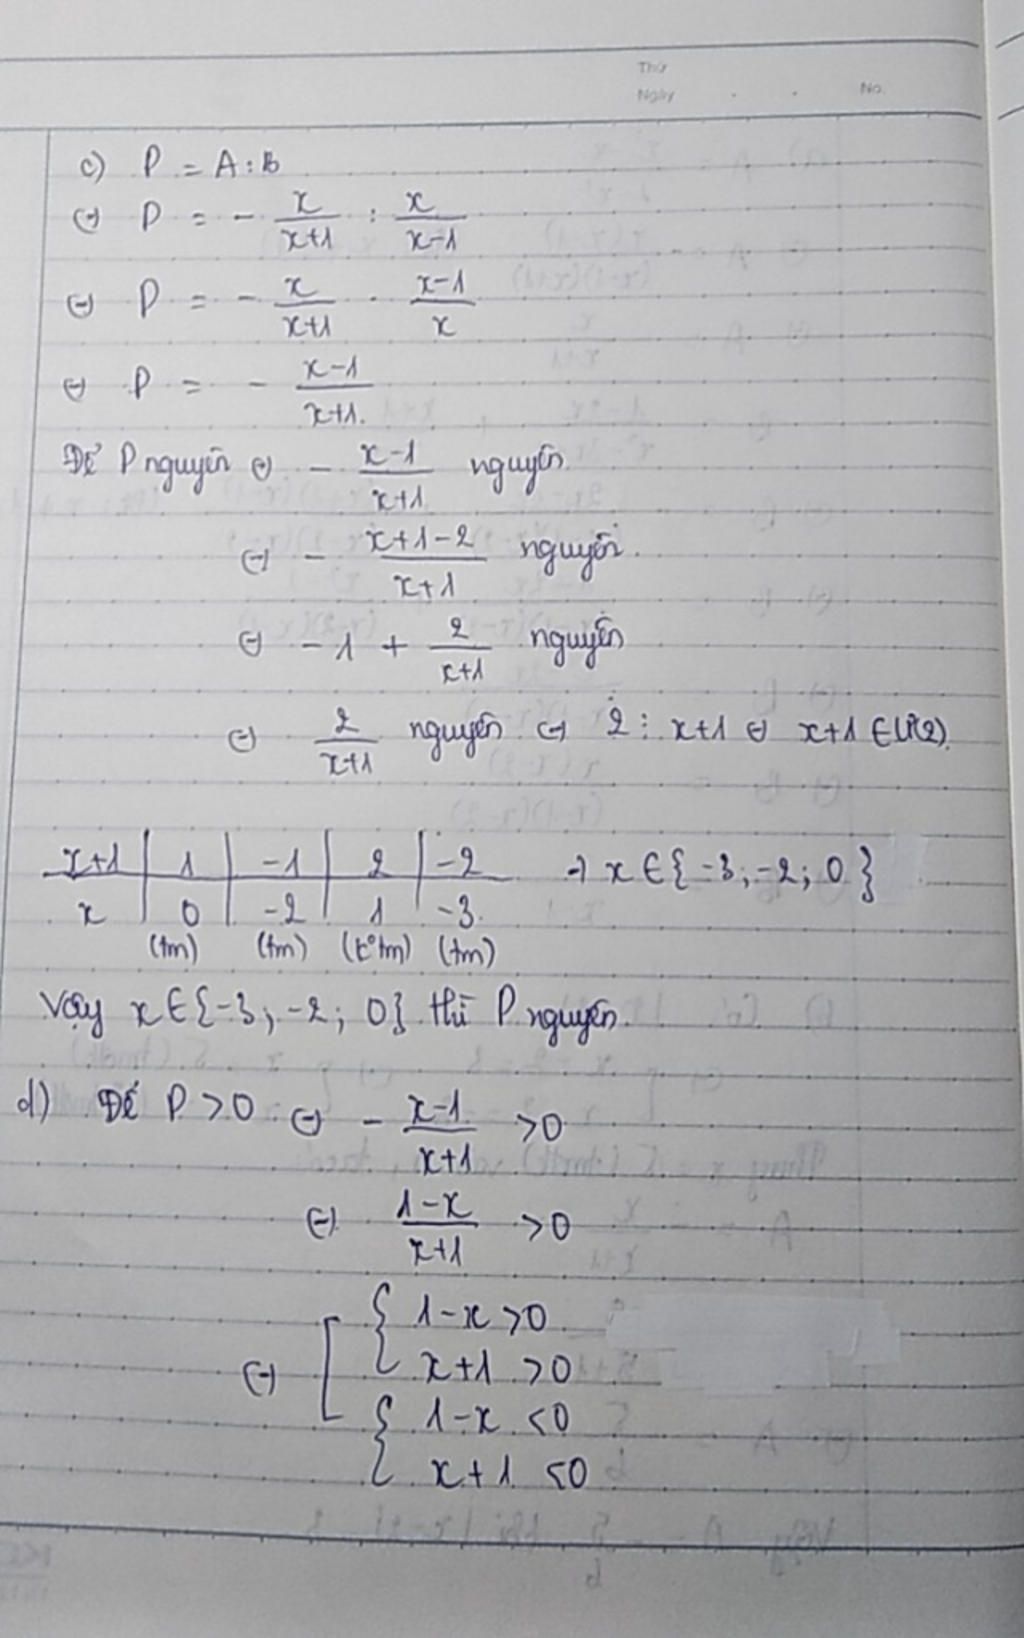 Thứ
Ngày . . No.
c) P = A : B
⇔ P = - x/(x+1) : x/(x-1)
⇔ P = - x/(x+1) . (x-1)/x
⇔ P = - (x-1)/(x+1).
Để P nguyên ⇔ - (x-1)/(x+1) nguyên.
⇔ - (x+1-2)/(x+1) nguyên.
⇔ -1 + 2/(x+1) nguyên
⇔ 2/(x+1) nguyên ⇔ 2 ⋮ x+1 ⇔ x+1 ∈ Ư(2).
x+1 | 1 | -1 | 2 | -2 → x ∈ {-3; -2; 0}
x | 0 | -2 | 1 | -3.
(tm) (tm) (k°tm) (tm)
Vậy x ∈ {-3; -2; 0} thì P nguyên.
d) Để P > 0 ⇔ - (x-1)/(x+1) > 0
⇔ (1-x)/(x+1) > 0
⇔ [ { 1-x > 0
x+1 > 0
{ 1-x < 0
x+1 < 0